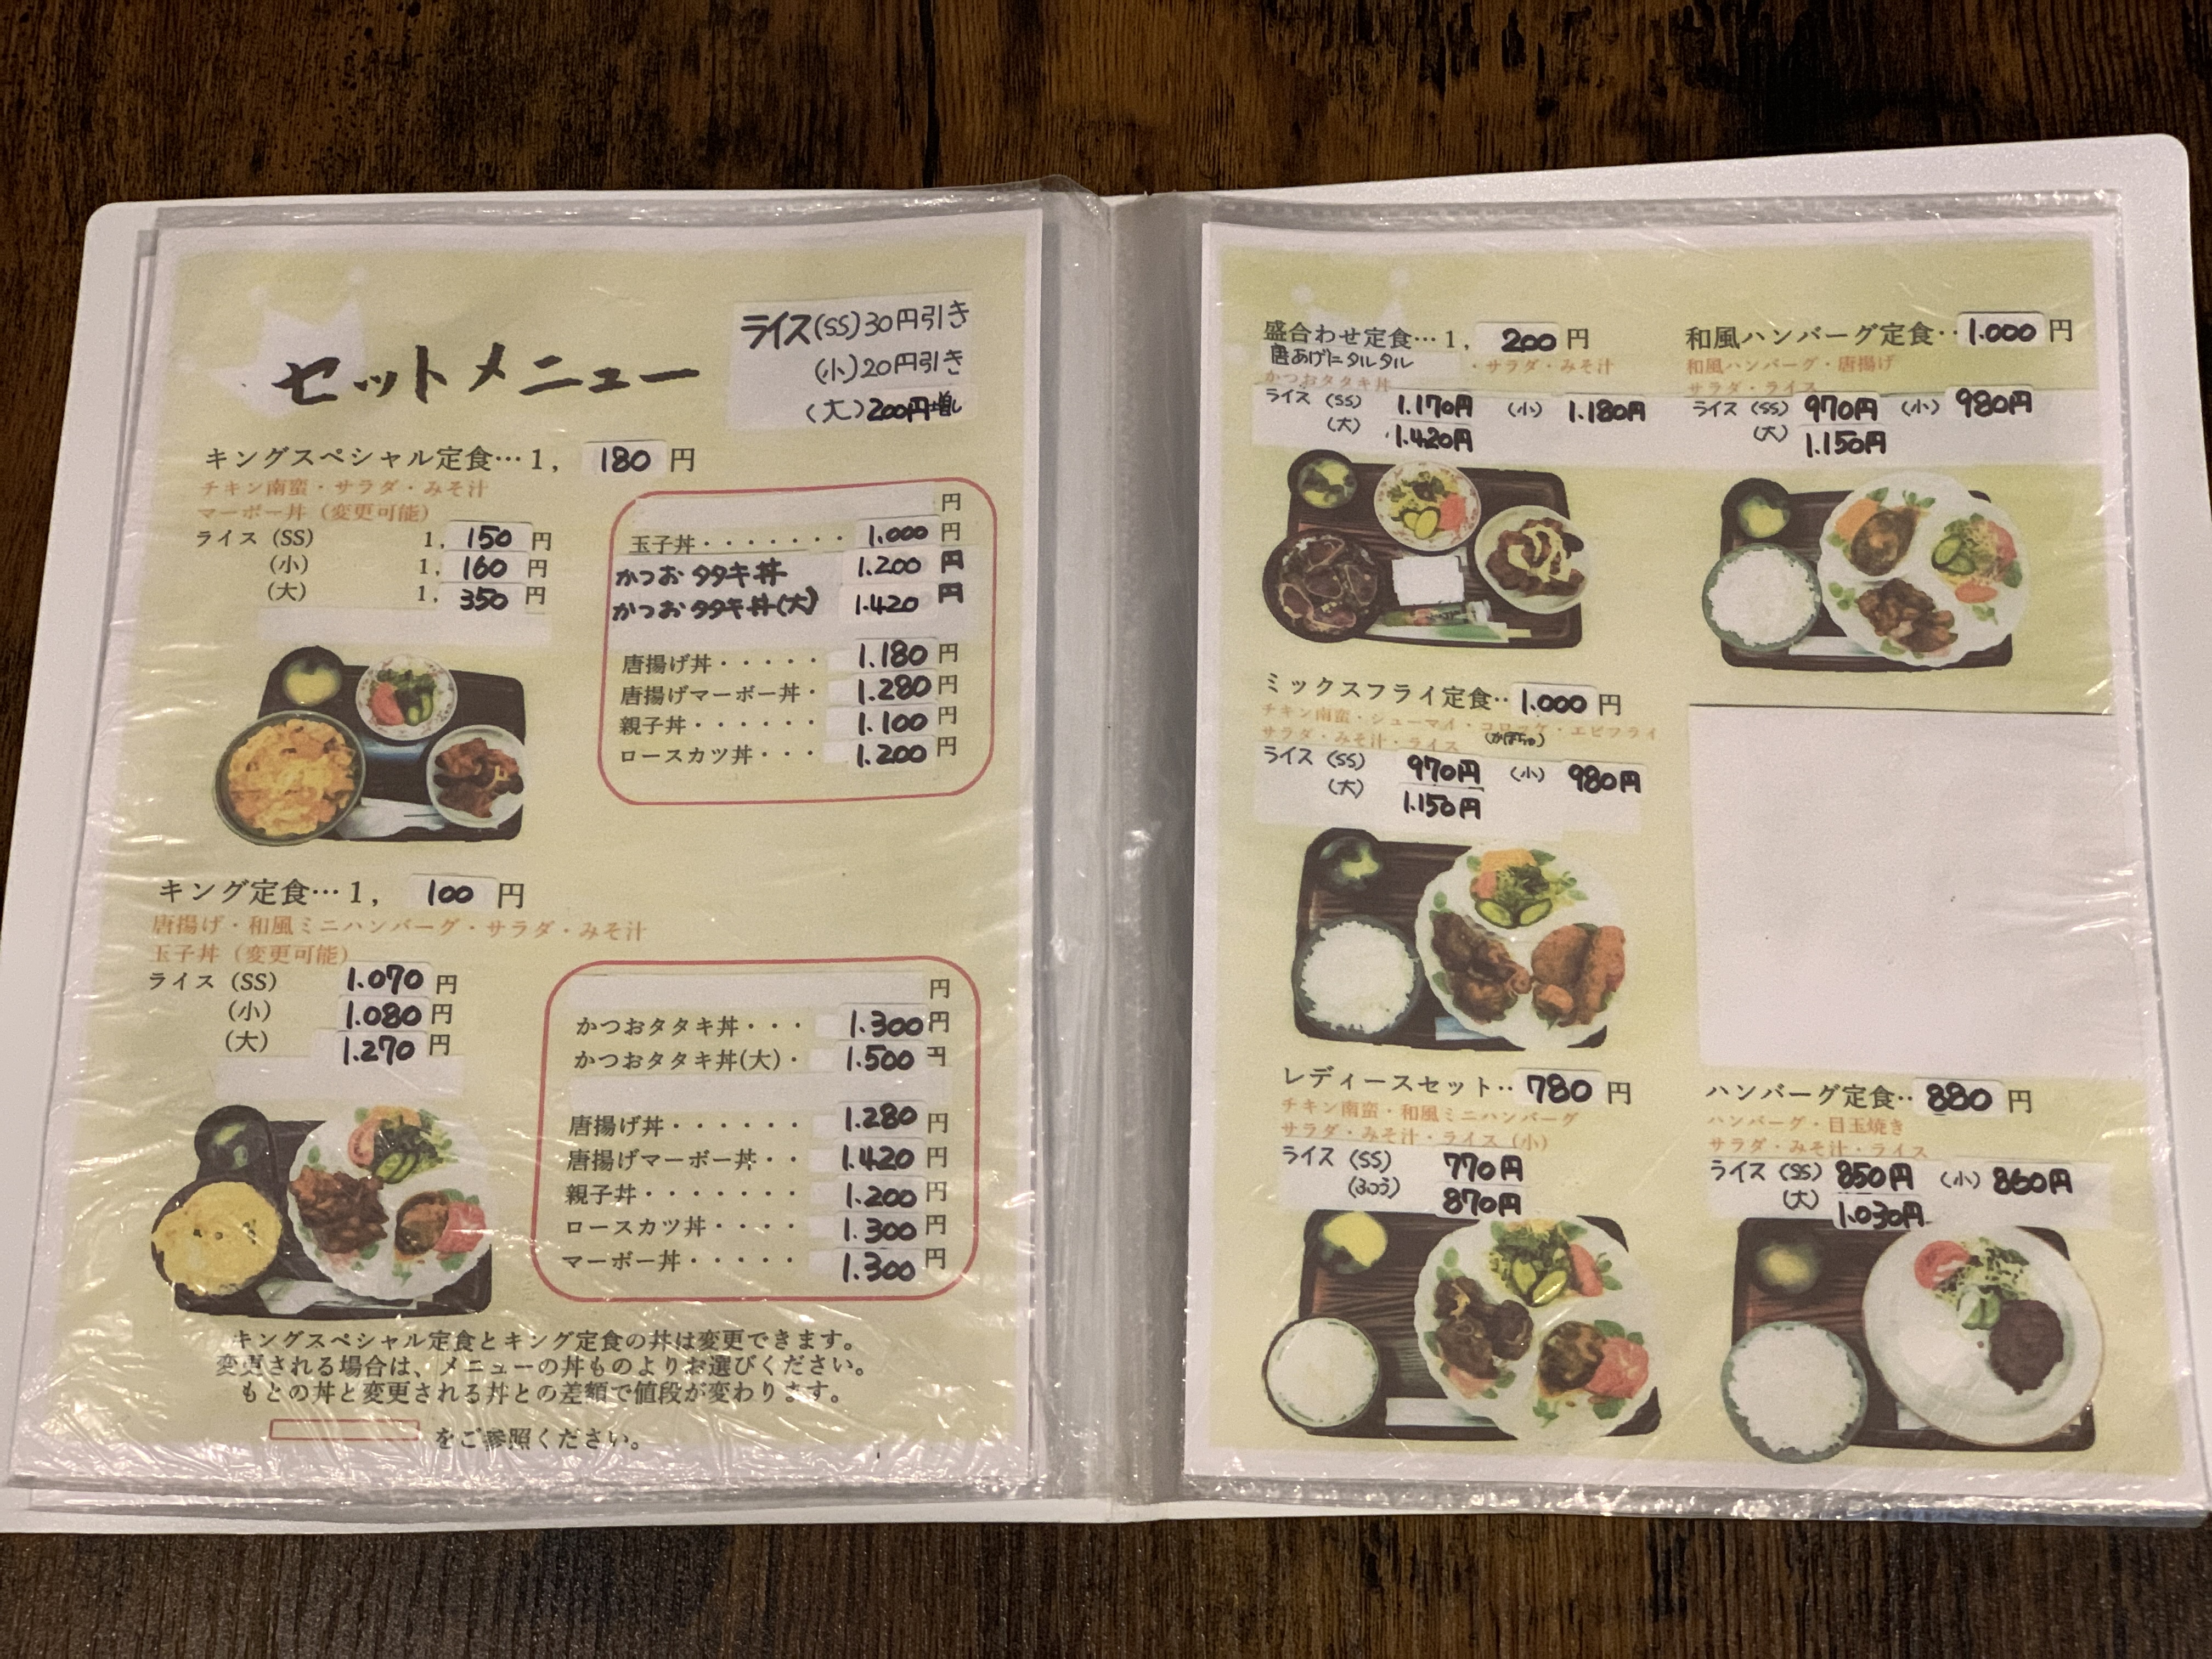 セットメニュー
ライス(SS)30円引き
(小)20円引き
(大)200円増し
キングスペシャル定食…1, 180 円
チキン南蛮・サラダ・みそ汁
マーボー丼（変更可能）
ライス（SS） 1, 150 円
（小） 1, 160 円
（大） 1, 350 円
円
玉子丼・・・・・・・ 1.000 円
かつおタタキ丼 1.200 円
かつおタタキ丼(大) 1.420 円
唐揚げ丼・・・・・ 1.180 円
唐揚げマーボー丼・ 1.280 円
親子丼・・・・・・ 1.100 円
ロースカツ丼・・・ 1.200 円
キング定食…1, 100 円
唐揚げ・和風ミニハンバーグ・サラダ・みそ汁
玉子丼（変更可能）
ライス（SS） 1.070 円
（小） 1.080 円
（大） 1.270 円
円
かつおタタキ丼・・・ 1.300 円
かつおタタキ丼(大)・ 1.500 円
唐揚げ丼・・・・・・ 1.280 円
唐揚げマーボー丼・・ 1.420 円
親子丼・・・・・・・ 1.200 円
ロースカツ丼・・・・ 1.300 円
マーボー丼・・・・・ 1.300 円
キングスペシャル定食とキング定食の丼は変更できます。
変更される場合は、メニューの丼ものよりお選びください。
もとの丼と変更される丼との差額で値段が変わります。
をご参照ください。
盛合わせ定食…1, 200 円
唐あげにタルタル ・サラダ・みそ汁
かつおタタキ丼
ライス（SS） 1.170円 （小） 1.180円
（大） 1.420円
和風ハンバーグ定食‥ 1.000 円
和風ハンバーグ・唐揚げ
サラダ・ライス
ライス（SS） 970円 （小） 980円
（大） 1.150円
ミックスフライ定食‥ 1.000 円
チキン南蛮・シューマイ・コロッケ・エビフライ
サラダ・みそ汁・ライス （かぼちゃ）
ライス（SS） 970円 （小） 980円
（大） 1.150円
レディースセット‥ 780 円
チキン南蛮・和風ミニハンバーグ
サラダ・みそ汁・ライス（小）
ライス（SS） 770円
（ふつう） 870円
ハンバーグ定食‥ 880 円
ハンバーグ・目玉焼き
サラダ・みそ汁・ライス
ライス（SS） 850円 （小） 860円
（大） 1.030円